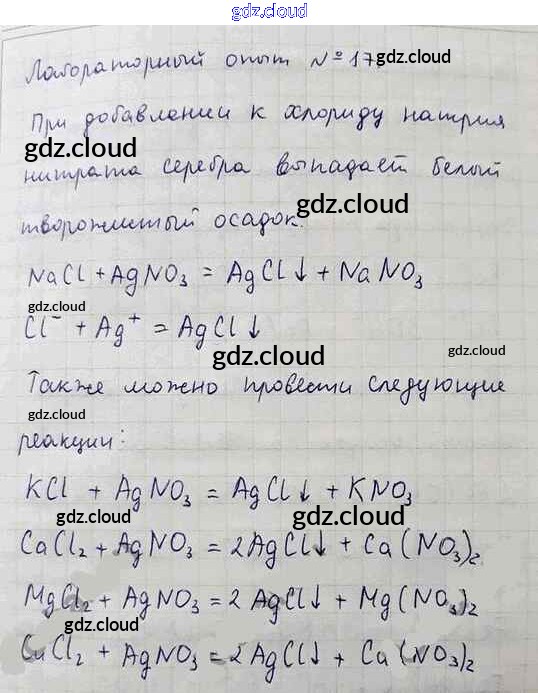 gdz.cloud
Лабораторный опыт №17 gdz.cloud
При добавлении к хлориду натрия
gdz.cloud
нитрата серебра выпадает белый
gdz.cloud
творожистый осадок.
NaCl + AgNO₃ = AgCl↓ + NaNO₃
gdz.cloud
Cl⁻ + Ag⁺ = AgCl↓
gdz.cloud gdz.cloud
Также можно провести следующие
gdz.cloud
реакции:
KCl + AgNO₃ = AgCl↓ + KNO₃
gdz.cloud gdz.cloud
CaCl₂ + AgNO₃ = 2AgCl↓ + Ca(NO₃)₂
MgCl₂ + AgNO₃ = 2AgCl↓ + Mg(NO₃)₂
gdz.cloud
CuCl₂ + AgNO₃ = 2AgCl↓ + Ca(NO₃)₂